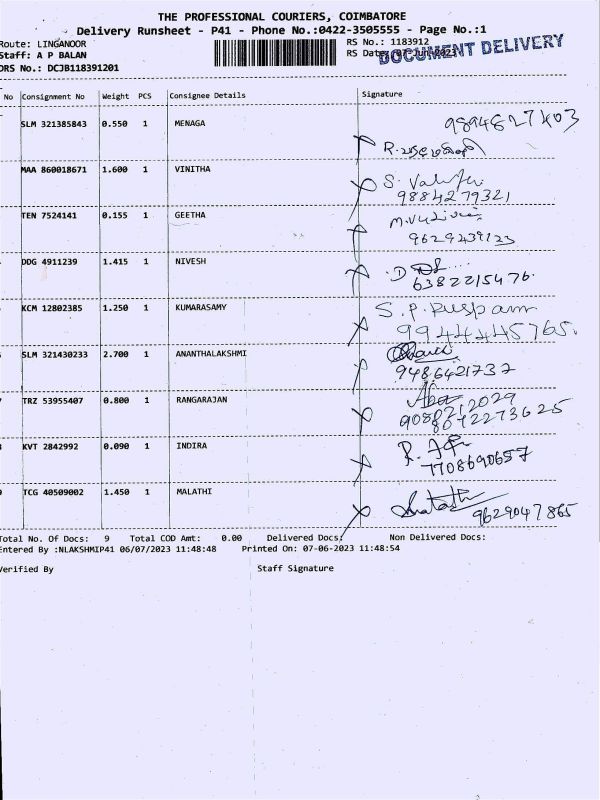 THE PROFESSIONAL COURIERS, COIMBATORE
Delivery Runsheet - P41 - Phone No.:0422-3505555 - Page No.:1
Route: LINGANOOR RS No.: 1183912
Staff: A P BALAN RS Date: 07-Jun-2023
DRS No.: DCJB118391201
DOCUMENT DELIVERY
No Consignment No Weight PCS Consignee Details Signature
SLM 321385843 0.550 1 MENAGA
MAA 860018671 1.600 1 VINITHA
9884279321
TEN 7524141 0.155 1 GEETHA
9629239123
DDG 4911239 1.415 1 NIVESH
6382215476.
KCM 12802385 1.250 1 KUMARASAMY S.P.
9944445765.
SLM 321430233 2.700 1 ANANTHALAKSHMI
9486421737
TRZ 53955407 0.800 1 RANGARAJAN
KVT 2842992 0.090 1 INDIRA
7708690657
TCG 40509002 1.450 1 MALATHI
9629047865
Total No. Of Docs: 9 Total COD Amt: 0.00 Delivered Docs: Non Delivered Docs:
Entered By :NLAKSHMIP41 06/07/2023 11:48:48 Printed On: 07-06-2023 11:48:54
Verified By Staff Signature